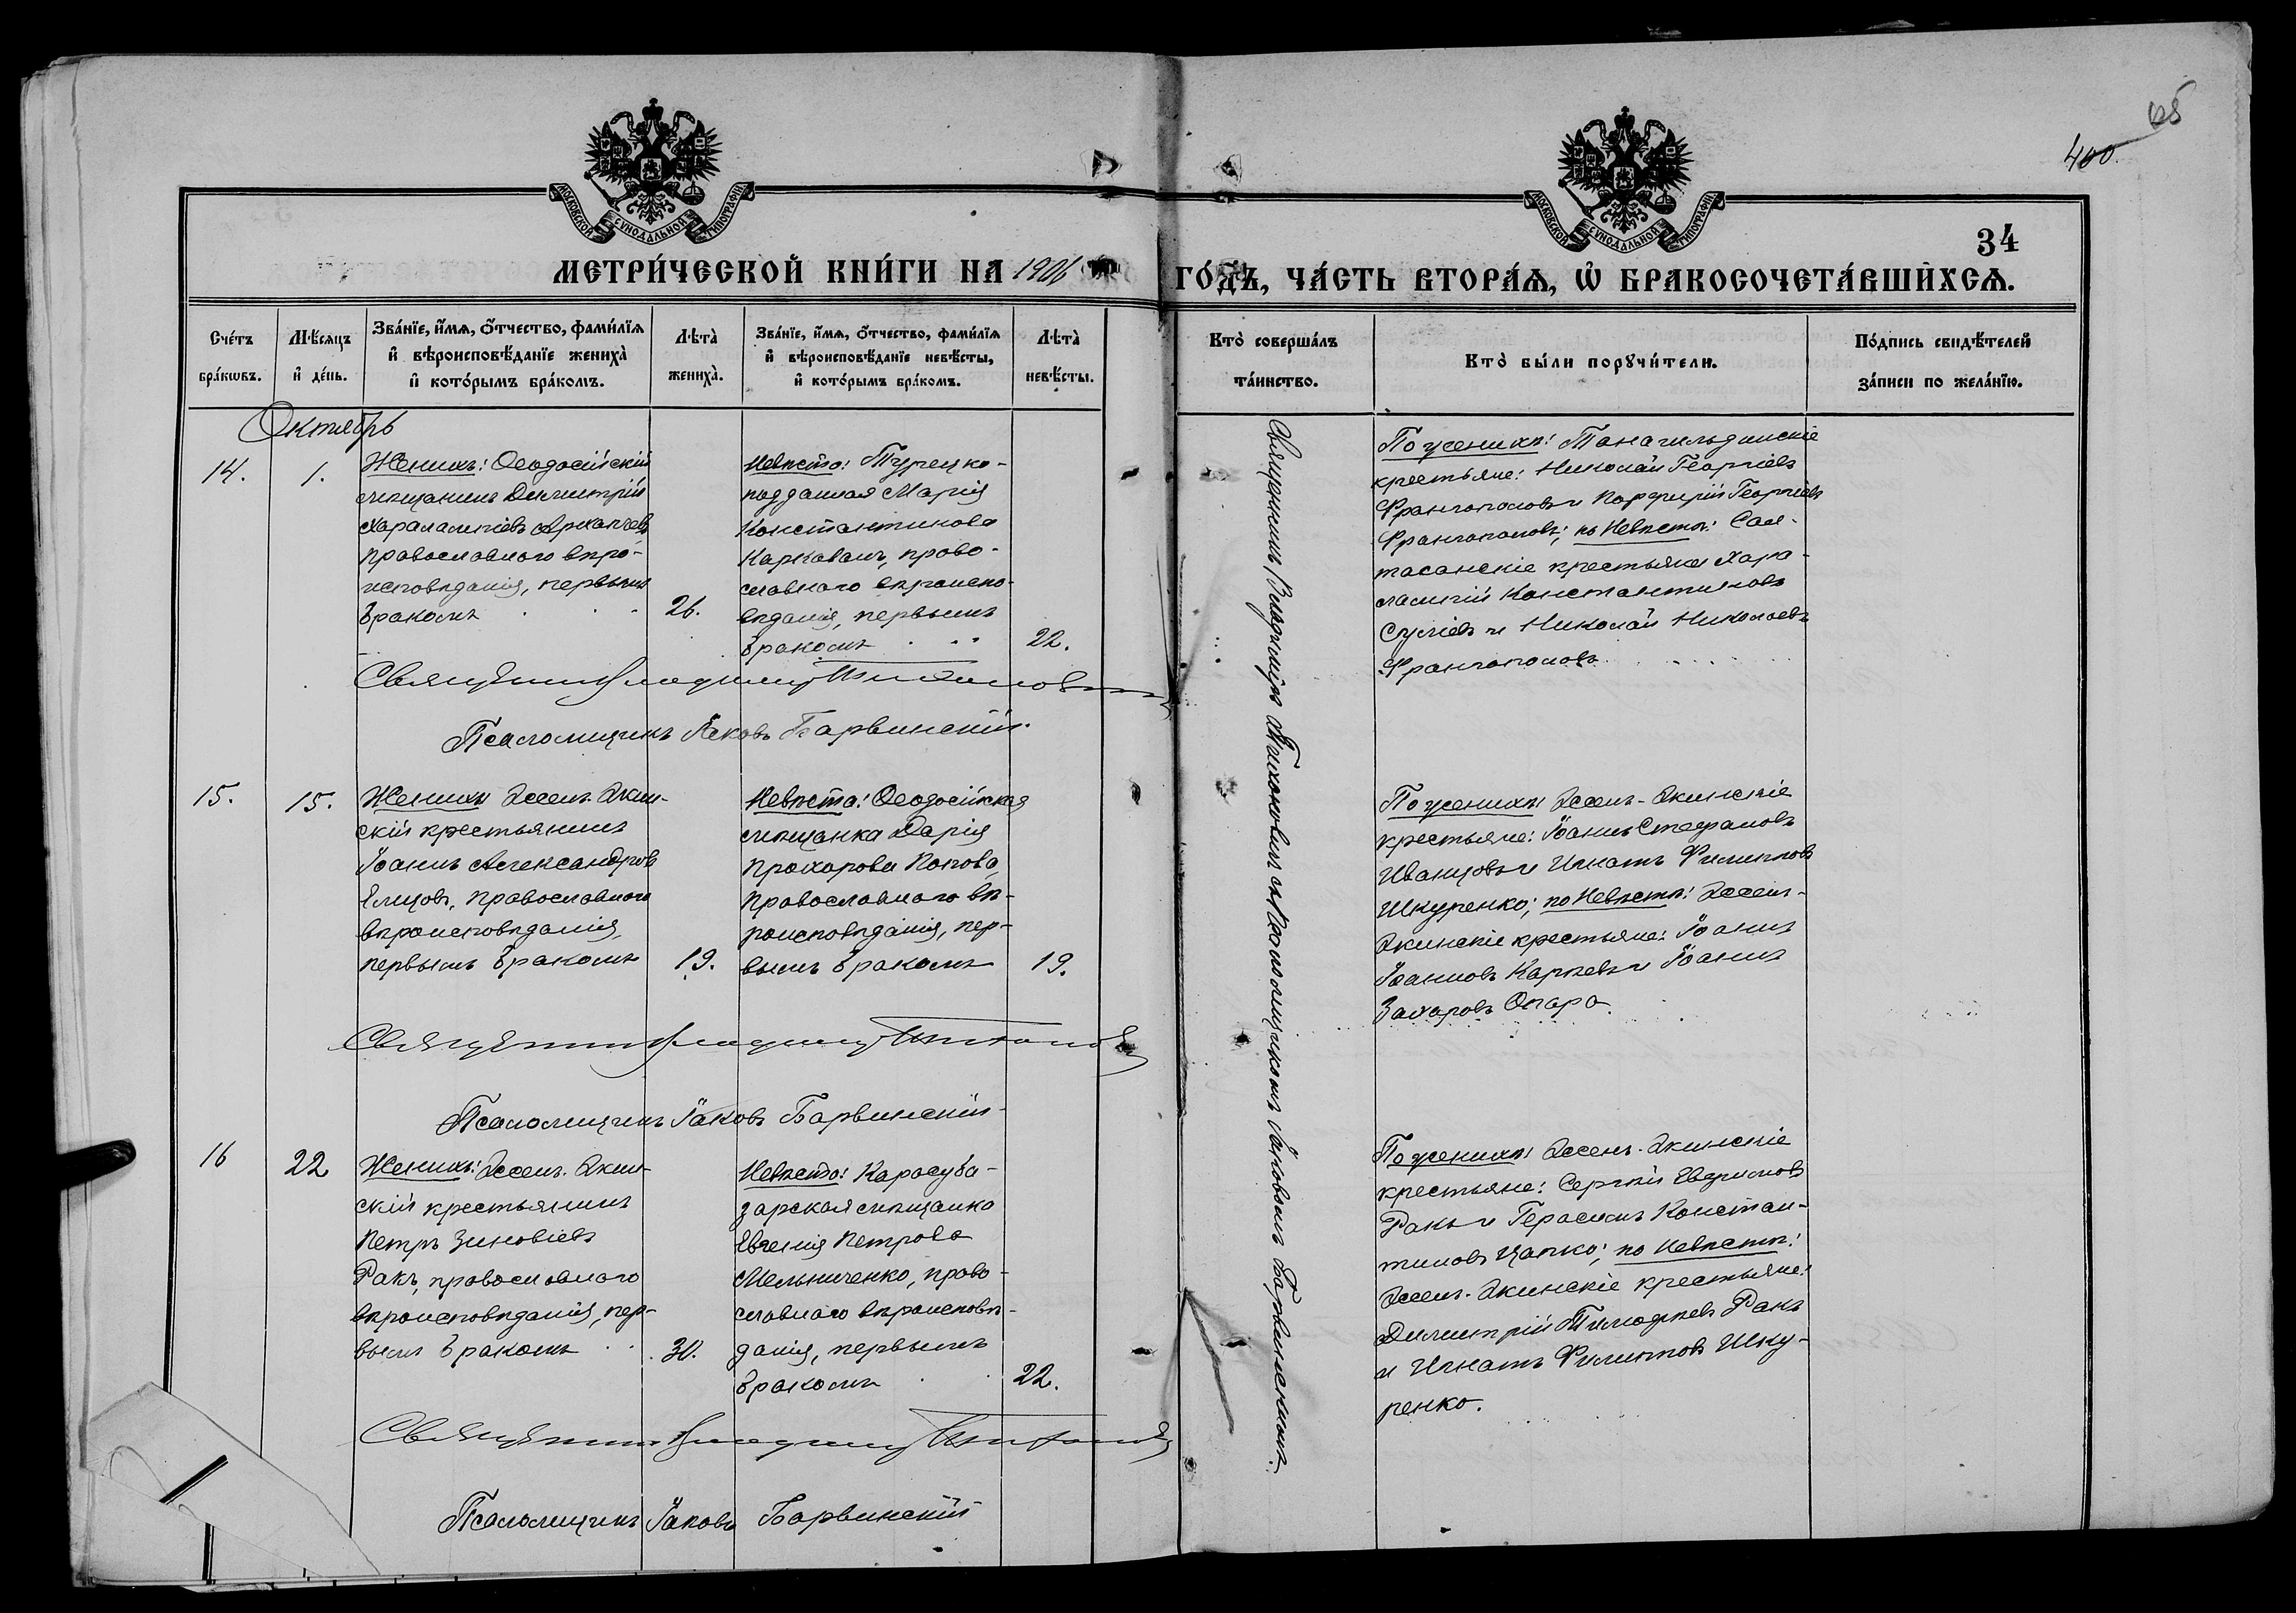 405
400.
МОСКОВСКОЙ СѴНОДАЛЬНОЙ ТИПОГРАФІИ
МОСКОВСКОЙ СѴНОДАЛЬНОЙ ТИПОГРАФІИ
34
МЕТРИ́ЧЕСКОЙ КНИ́ГИ НА 1906 ГО́ДЪ, ЧА́СТЬ ВТОРА́Ѧ, Ѽ БРАКОСОЧЕТА́ВШИХСѦ.
Сче́тъ бра́кѡвъ.
Мѣ́сяцъ и҆ де́нь.
Зва́нїе, и҆́мѧ, ѻ҆́тчество, фами́лїѧ и҆ вѣроисповѣ́данїе жениха̀ и҆ кото́рымъ бра́комъ.
Лѣта̀ жениха̀.
Зва́нїе, и҆́мѧ, ѻ҆́тчество, фами́лїѧ и҆ вѣроисповѣ́данїе невѣ́сты, и҆ кото́рымъ бра́комъ.
Лѣта̀ невѣ́сты.
Кто̀ соверша́лъ та́инство.
Кто̀ бы́ли порꙋчи́тели.
По́дпись свидѣ́телей за́писи по жела́нїю.
Октябрь
14.
1.
Женихъ: Ѳеодосійскій
мѣщанинъ Димитрій
Харалампіевъ
православнаго вѣро-
исповѣданія, первымъ
бракомъ
26.
Невѣста: Турецко-
подданная Марія
Константинова
православнаго вѣроиспо-
вѣданія, первымъ
бракомъ
22.
По женихѣ: Танагельдинскіе
крестьяне: Николай Георгіевъ
Франгопуловъ и Порфирій Георгіевъ
Франгопуловъ; по невѣстѣ: Сал-
тасанскіе крестьяне Хара-
лампій Константиновъ
Сумевъ и Николай Николаевъ
Франгопуловъ
Священникъ Владиміръ Тихоновичъ
Псаломщикъ Іаковъ Барвинскій.
Священникъ Владиміръ Тихоновичъ съ Псаломщикомъ Іаковомъ Барвинскимъ.
15.
15.
Женихъ: Эссенъ-Экин-
скій крестьянинъ
Іоаннъ Александровъ
православнаго
вѣроисповѣданія,
первымъ бракомъ
19.
Невѣста: Ѳеодосійская
мѣщанка Дарія
Прохорова Попова,
православнаго вѣ-
роисповѣданія, пер-
вымъ бракомъ
19.
По женихѣ: Эссенъ-Экинскіе
крестьяне: Іоаннъ Стефановъ
Иванцовъ и Игнатъ Филипповъ
Шкуренко; по невѣстѣ: Эссенъ-
Экинскіе крестьяне: Іоаннъ
Іоанновъ Карпевъ и Іоаннъ
Захаровъ Опара
Священникъ Владиміръ Тихоновичъ
Псаломщикъ Іаковъ Барвинскій
16
22
Женихъ: Эссенъ-Экин-
скій крестьянинъ
Петръ Зиновіевъ
Ракъ, православнаго
вѣроисповѣданія, пер-
вымъ бракомъ
30.
Невѣста: Карасуба-
зарская мѣщанка
Евгенія Петрова
Мельниченко, право-
славнаго вѣроисповѣ-
данія, первымъ
бракомъ
22.
По женихѣ: Эссенъ-Экинскіе
крестьяне: Сергій Евфимовъ
Ракъ и Герасимъ Констан-
тиновъ Цапко; по невѣстѣ:
Эссенъ-Экинскіе крестьяне:
Димитрій Тимофеевъ Ракъ
и Игнатъ Филипповъ Шку-
ренко.
Священникъ Владиміръ Тихоновичъ
Псаломщикъ Іаковъ Барвинскій